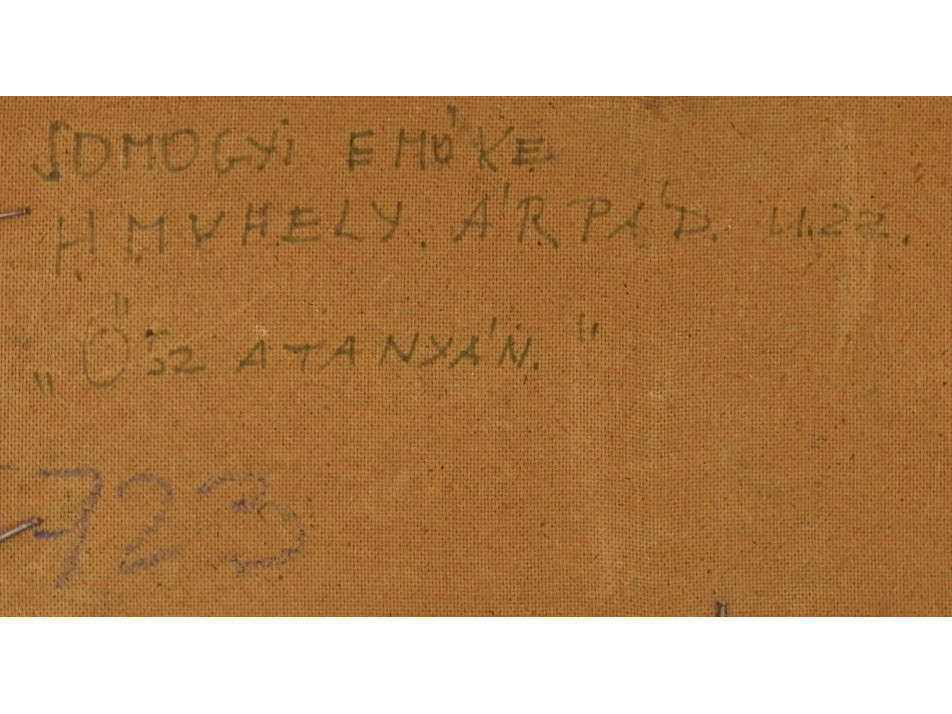 SOMOGYI EMŐKE
H.M.VHELY. ÁRPÁD. U.22.
„Ősz A TANYÁN."
723